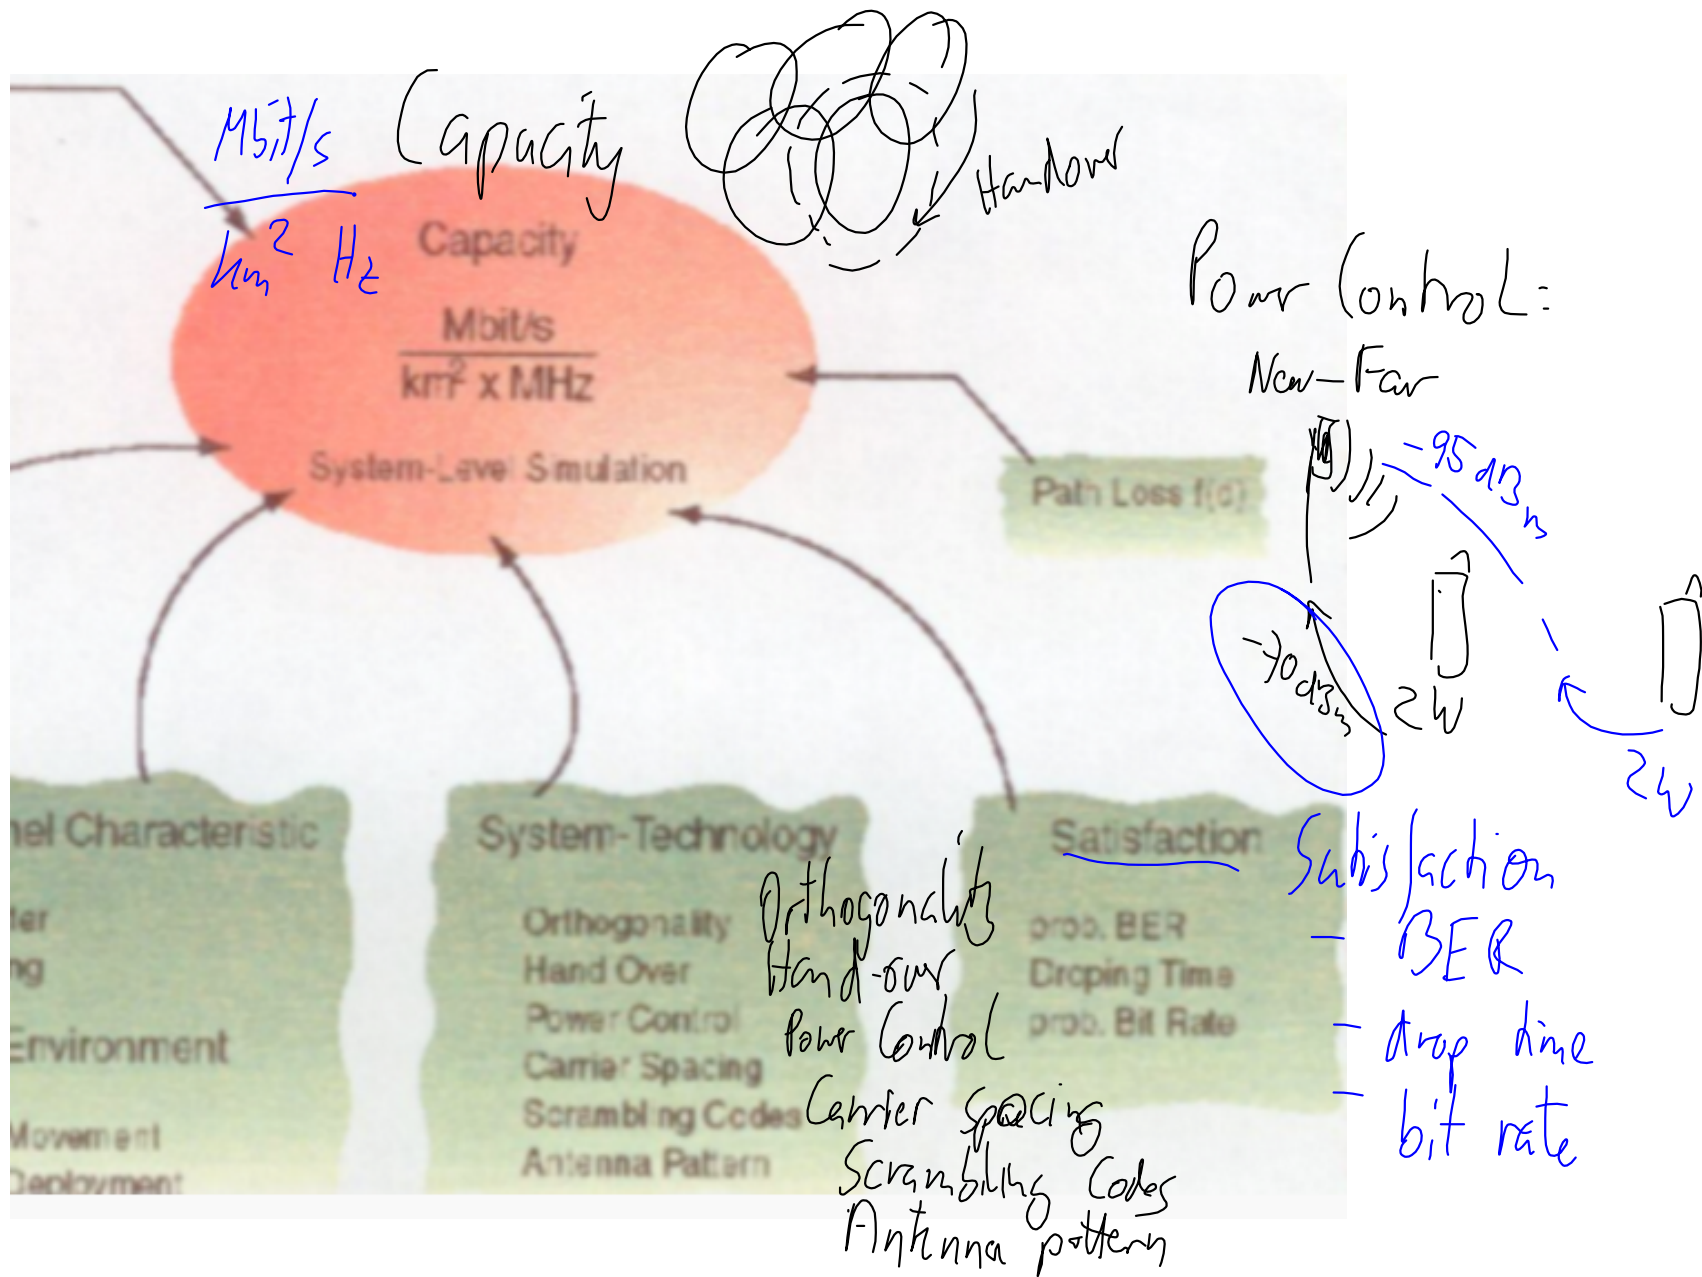 Mbit/s
km² Hz
Capacity
Handover
Capacity
Mbit/s
km² x MHz
System-Level Simulation
Path Loss f(d)
Power Control:
Near-Far
-95 dBm
-70 dBm
2W
2W
nel Characteristic
ter
ng
Environment
Movement
Deployment
System-Technology
Orthogonality
Hand Over
Power Control
Carrier Spacing
Scrambling Codes
Antenna Pattern
Orthogonality
Hand-over
Power Control
Carrier spacing
Scrambling Codes
Antenna pattern
Satisfaction
prob. BER
Droping Time
prob. Bit Rate
Satisfaction
- BER
- drop time
- bit rate